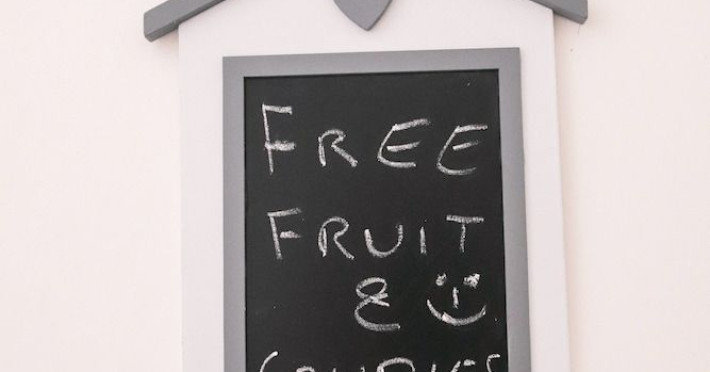 FREE
FRUIT
&